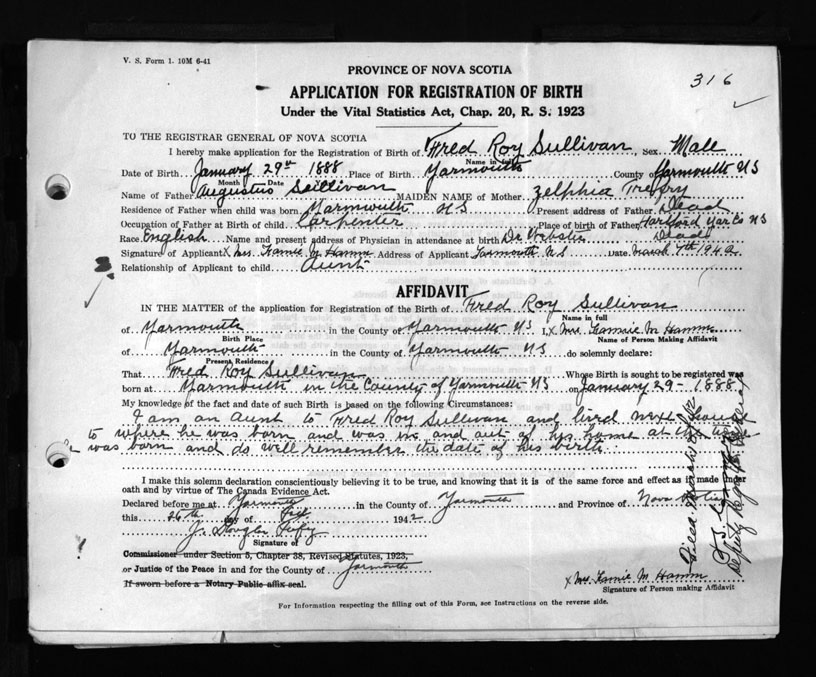 V. S. Form 1. 10M 6-41
316
PROVINCE OF NOVA SCOTIA
APPLICATION FOR REGISTRATION OF BIRTH
Under the Vital Statistics Act, Chap. 20, R. S. 1923
TO THE REGISTRAR GENERAL OF NOVA SCOTIA
I hereby make application for the Registration of Birth of Fred Roy Sullivan, Sex Male
Name in full
Date of Birth January 29th 1888 Place of Birth Yarmouth County Yarmouth N S
Month Date
Name of Father Augustus Sullivan MAIDEN NAME of Mother Zelphia
Residence of Father when child was born Yarmouth N S Present address of Father Dead
Occupation of Father at Birth of child Carpenter Place of birth of Father Yar Co N S
Race English Name and present address of Physician in attendance at birth Dr Webster Dead
Signature of Applicant x Mrs. M. Hamm Address of Applicant Yarmouth N S Date March 7th 1942
Relationship of Applicant to child Aunt
AFFIDAVIT
IN THE MATTER of the application for Registration of the Birth of Fred Roy Sullivan
Name in full
of Yarmouth in the County of Yarmouth N S I, x Mrs M Hamm
Birth Place Name of Person Making Affidavit
of Yarmouth in the County of Yarmouth N S do solemnly declare:
Present Residence
That Fred Roy Sullivan Whose Birth is sought to be registered was
born at Yarmouth in the County of Yarmouth N S on January 29 - 1888
My knowledge of the fact and date of such Birth is based on the following Circumstances:
I am an aunt to Fred Roy Sullivan and lived next house
to where he was born and was in and out of his home at the time
he was born and do well remember the date of his birth
I make this solemn declaration conscientiously believing it to be true, and knowing that it is of the same force and effect as if made under
oath and by virtue of The Canada Evidence Act.
Declared before me at Yarmouth in the County of Yarmouth and Province of Nova Scotia
this 26th day of 1942
J. Douglas
Signature of
Commissioner under Section 5, Chapter 38, Revised Statutes, 1923,
or Justice of the Peace in and for the County of Yarmouth
If sworn before a Notary Public affix seal.
x Mrs. M. Hamm
Signature of Person making Affidavit
For Information respecting the filling out of this Form, see Instructions on the reverse side.
Filed March
Deputy Registrar General